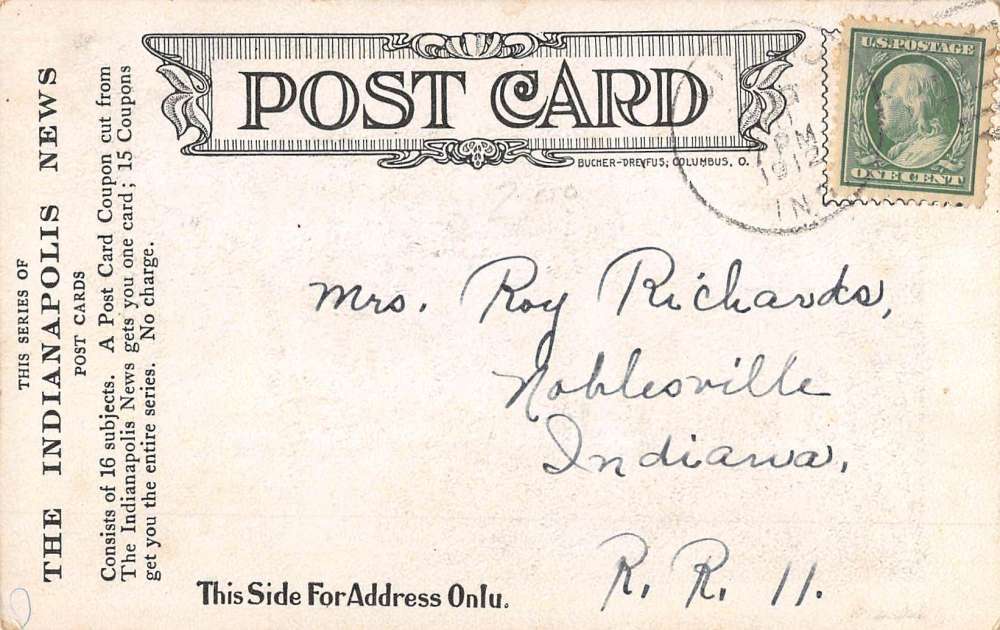 THIS SERIES OF
THE INDIANAPOLIS NEWS
POST CARDS
Consists of 16 subjects. A Post Card Coupon cut from
The Indianapolis News gets you one card; 15 Coupons
get you the entire series. No charge.
POST CARD
BUCHER-DREYFUS; COLUMBUS, O.
PM
1912
IN
U.S. POSTAGE
ONE CENT
2.00
Mrs. Roy Richards,
Noblesville
Indiana.
R. R. 11.
This Side For Address Only.